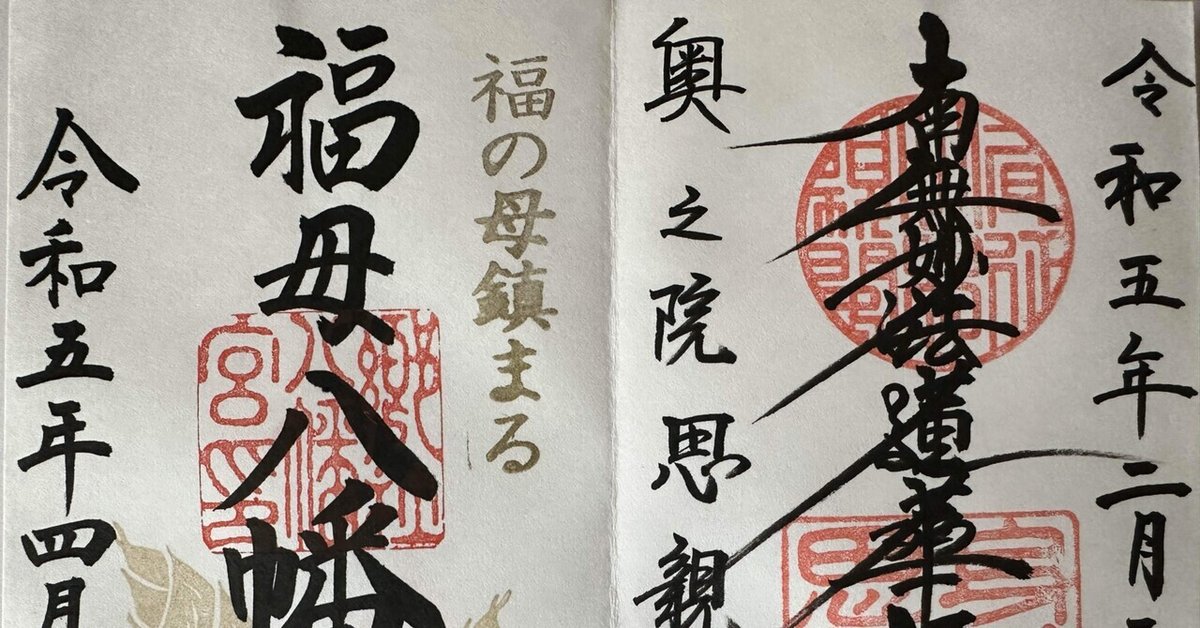 令和五年二月
南無妙法蓮華
奥之院思親
福の母鎮まる
福母八幡
令和五年四月